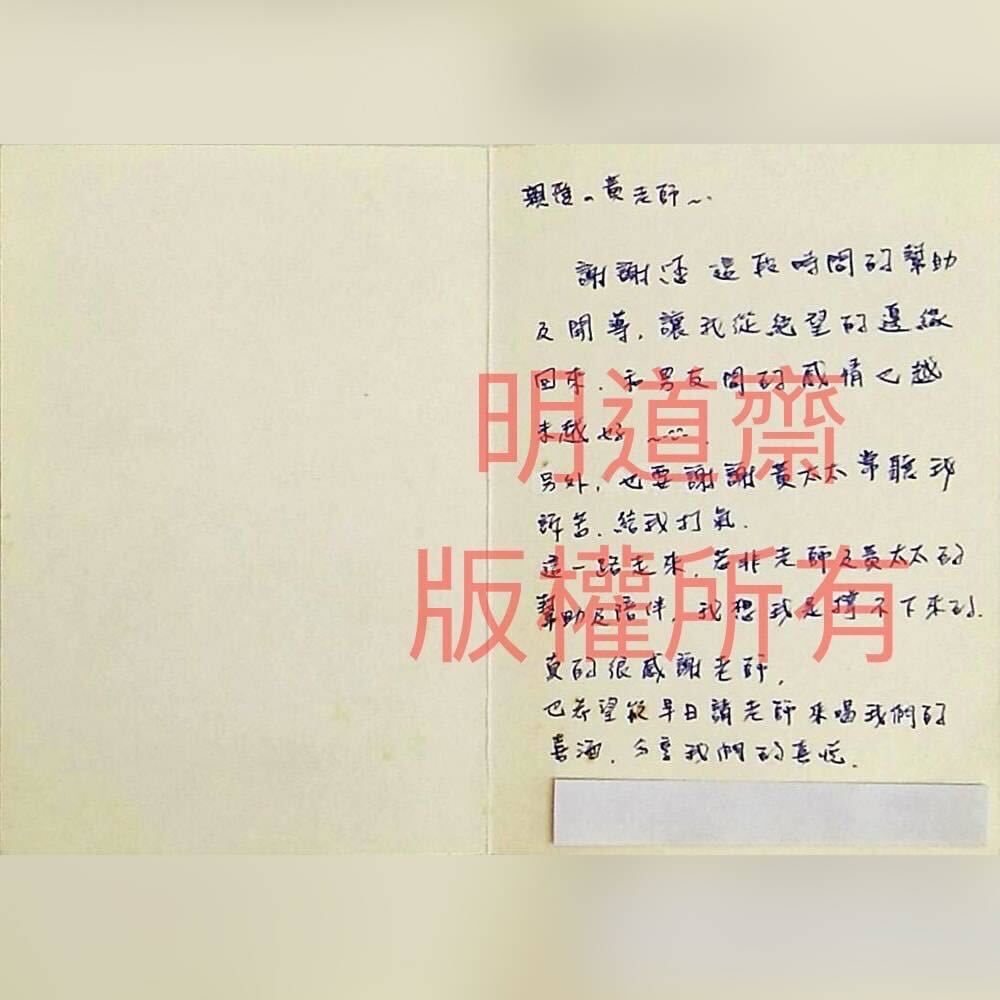 親愛的黃老師~.
謝謝您這段時間的幫助
及開導,讓我從絕望的邊緣
回來,和男友間的感情也越
來越好~
另外,也要謝謝黃太太常聽我
訴苦,給我打氣.
這一路走來,若非老師及黃太太的
幫助及陪伴,我想我是撐不下來的.
真的很感謝老師,
也希望能早日請老師來喝我們的
喜酒,分享我們的喜悅.
明道齋
版權所有